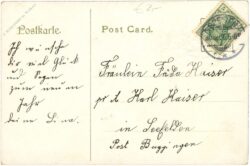 Postkarte.
Post Card.
Ich wünsch
dir viel Glück
und Segen
zum neuen
Jahr
deine L. na.
Fräulein Frida Kaiser
pr. A. Karl Kaiser
in Seefelden
Post Buggingen